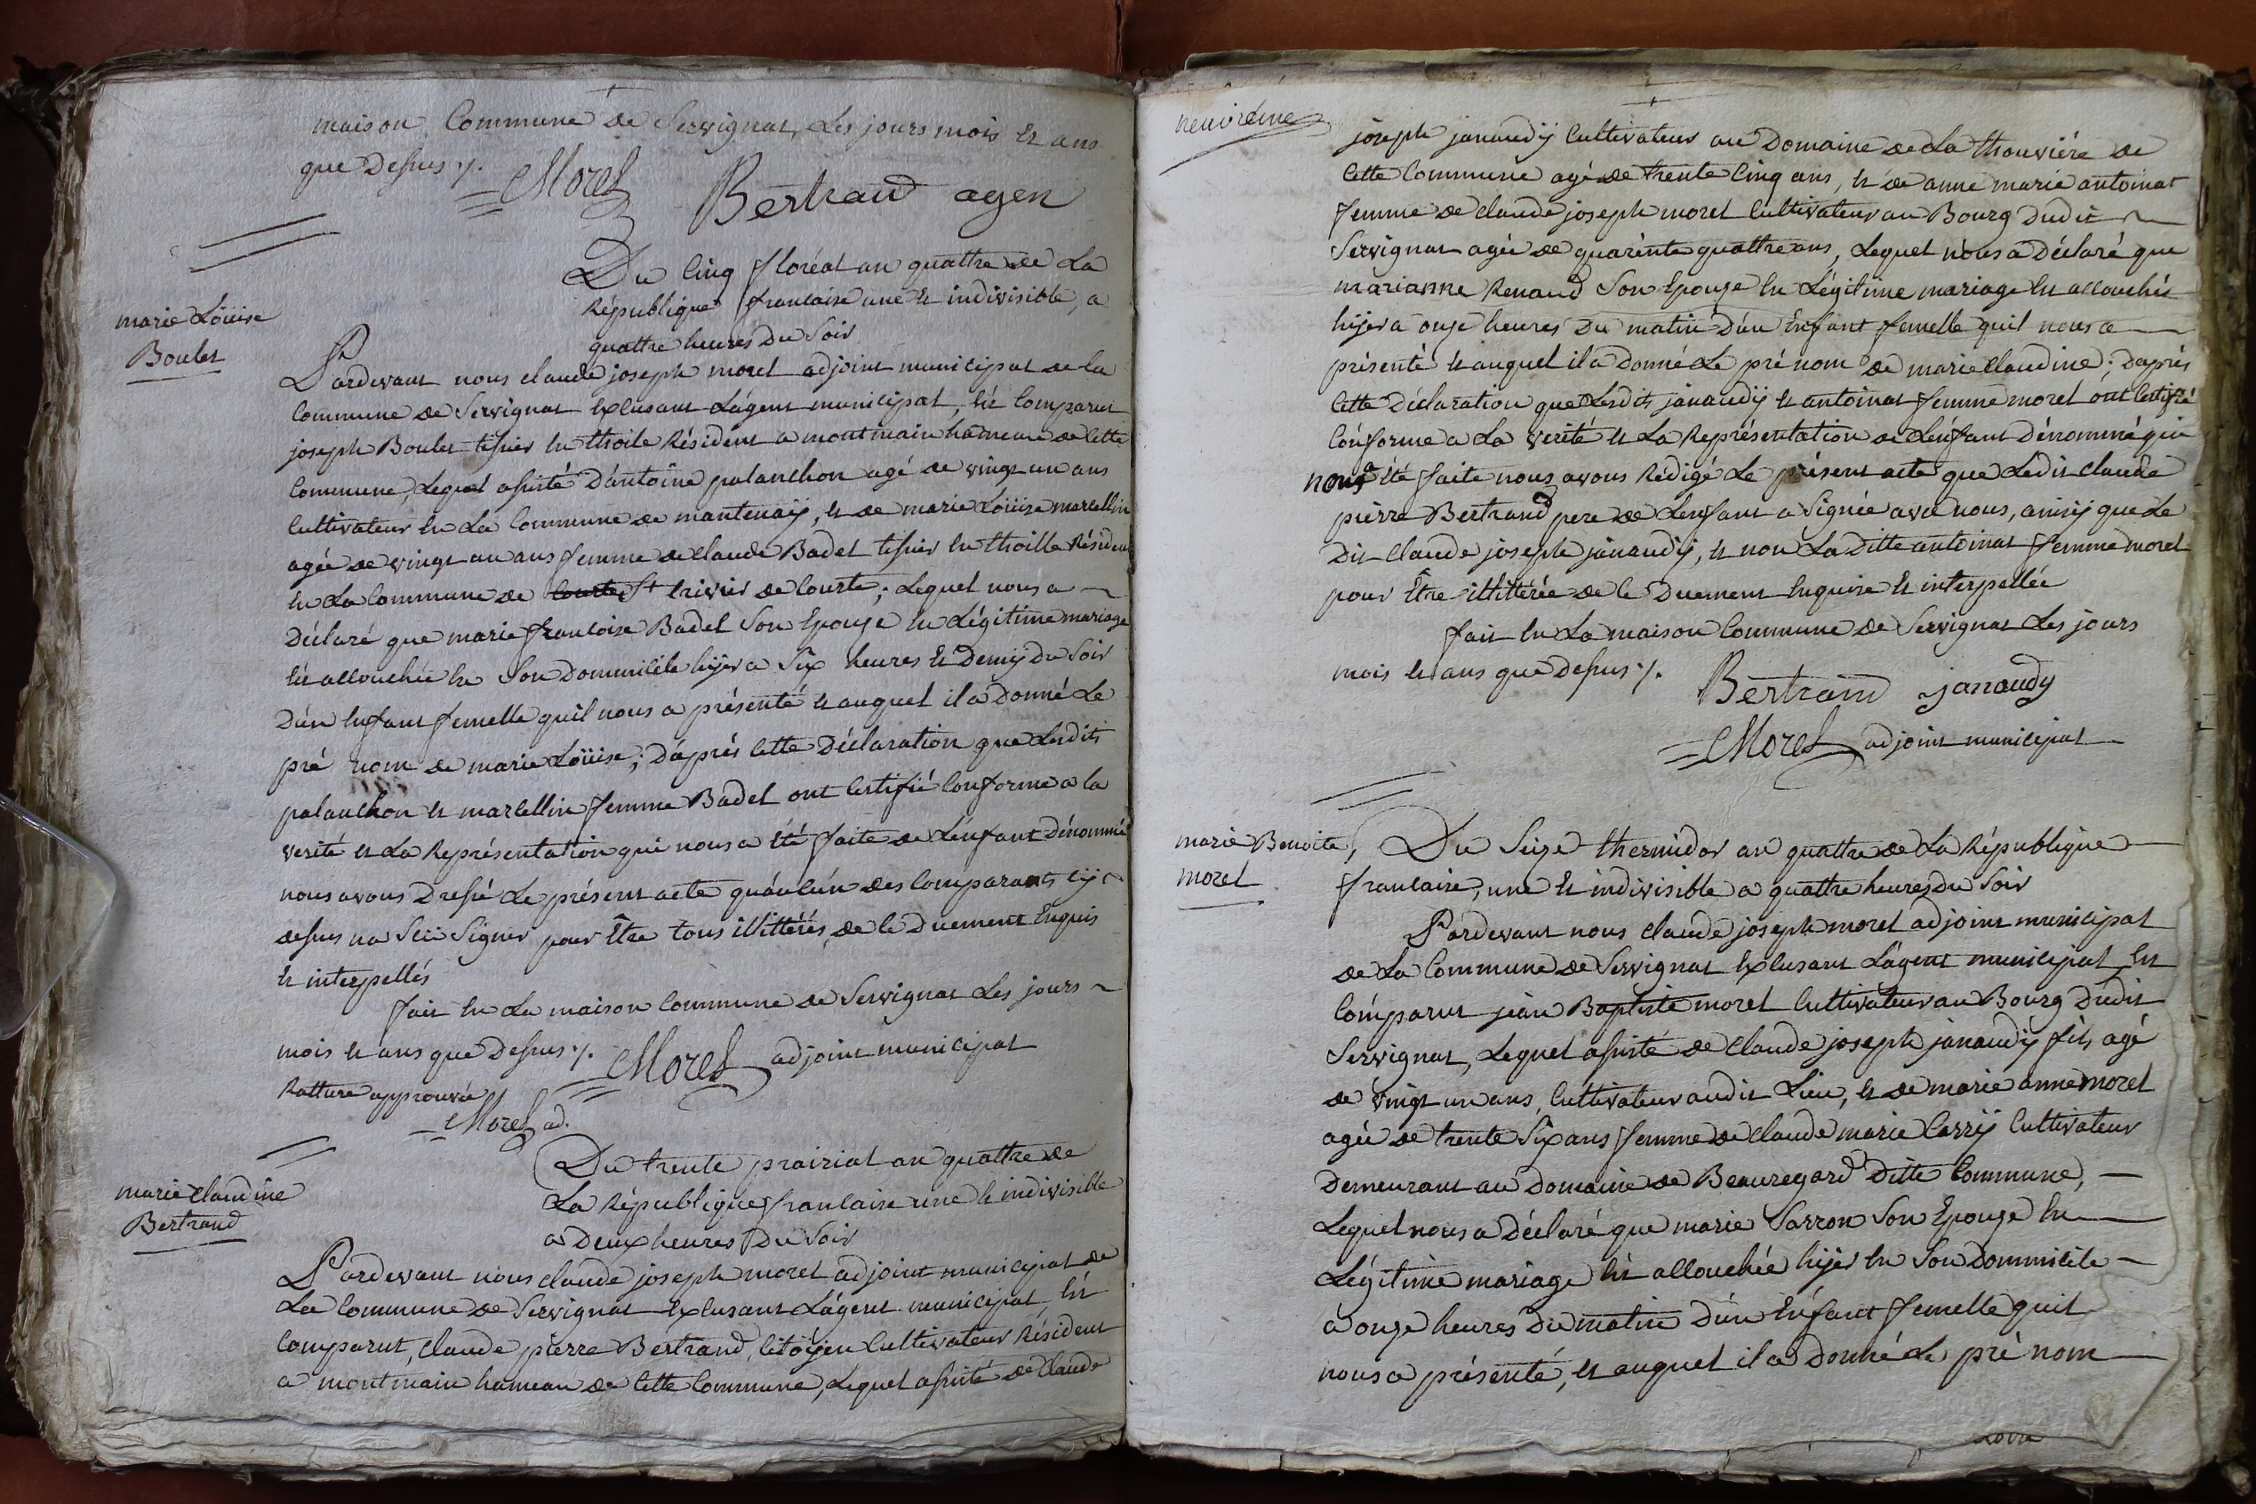 maison Commune de Servignat, Les jours mois et ans
que Dessus ./.
Morel
Bertrand agen
Du Cinq floréal an quattre de La
République francaise une et indivisible, a
quattre heures Du Soir
marie Loüise
Boulet
Pardevant nous claude joseph morel adjoint municipal de la
Commune de Servignat Excusant L'agent municipal, Est Comparut
joseph Boulet tissier En thoile Résident a montmain hameau de Cette
Commune, Lequel assisté D'antoine palanchon agé de vingt un ans
Cultivateur En La Commune de mantenaÿ, et de marie Loüise marcellin
agée de vingt un ans femme de claude Badel tissier En thoille Résident
En La Commune de Courte St trivier de Courte; Lequel nous a
Déclaré que marie francoise Badel Son Epouze En Légitime mariage
Est accouchée En Son Dommicile hijer a Six heures Et Demij Du Soir
D'un Enfant femelle quil nous a présenté et auquel il a Donné Le
pré nom de marie Loüise; D'après Cette Déclaration que Lesdits
palanchon et marcellin femme Badel ont Certifié Conforme a la
verité et La Représentation qui nous a Eté faite de L'enfant Dénommé
nous avons Dressé Le présent acte qu'aucun des Comparants cij
dessus na Sçü Signer pour Être tous illittérés, de Ce Duement Enquis
et interpellés
fait En La maison Commune de Servignat Les jours
mois et ans que Dessus ./.
Morel adjoint municipal
Ratture approuvée
Morel ad.
Du trente prairial an quattre de
La République francaise une et indivisible
a Deux heures Du Soir
marie claudine
Bertrand
Pardevant nous claude joseph morel adjoint municipal de
La Commune de Servignat Excusant L'agent municipal, Est
Comparut, claude pierre Bertrand, Citöÿen Cultivateur Résident
a montmain hameau de Cette Commune, Lequel assisté de claude
neuvième
joseph janaudÿ Cultivateur au Domaine de La thouvière de
Cette Commune agé de trente Cinq ans, et de anne marie antoinat
femme de claude joseph morel Cultivateur au Bourg Dudit
Servignat agée de quarènte quattre ans, Lequel nous a Déclaré que
marianne Renaud Son Epouze En Légitime mariage Est accouchée
hijer a onze heures Du matin D'un Enfant femelle quil nous a
présenté et auquel il a Donné Le pré nom de marie claudine; D'après
Cette Déclaration que Lesdits janaudÿ et antoinat femme morel ont Certifié
Conforme a La verité et La Représentation de L'enfant Dénommé qui
nous a été faite nous avons Rédigé Le présent acte que Ledit claude
pierre Bertrand pere de L'enfant a Signée avec nous, ainsÿ que Le
Dit claude joseph janaudÿ, et non La Ditte antoinat femme morel
pour Être illittérée de Ce Duement Enquise et interpellée
fait En La maison Commune de Servignat Les jours
mois et ans que Dessus ./.
Bertrand janaudy
Morel adjoint municipal
marie Benoite,
morel
Du Seize thermidor an quattre de La République
francaise, une et indivisible a quattre heures du Soir
Pardevant nous claude joseph morel adjoint municipal
de La Commune de Servignat Excusant L'agent municipal, Est
Comparut jean Baptiste morel Cultivateur au Bourg Dudit
Servignat, Lequel assisté de claude joseph janaudÿ fils agé
de vingt un ans, Cultivateur audit Lieu, et de marie anne morel
agée de trente Six ans femme de claude marie Carrÿ Cultivateur
Demeurant au Domaine de Beauregard Ditte Commune,
Lequel nous a Déclaré que marie Sarron Son Epouze En
Légitime mariage Est accouchée hijer En Son Dommicile
a onze heures Du matin D'un Enfant femelle quil
nous a présenté, et auquel il a Donné Le pré nom